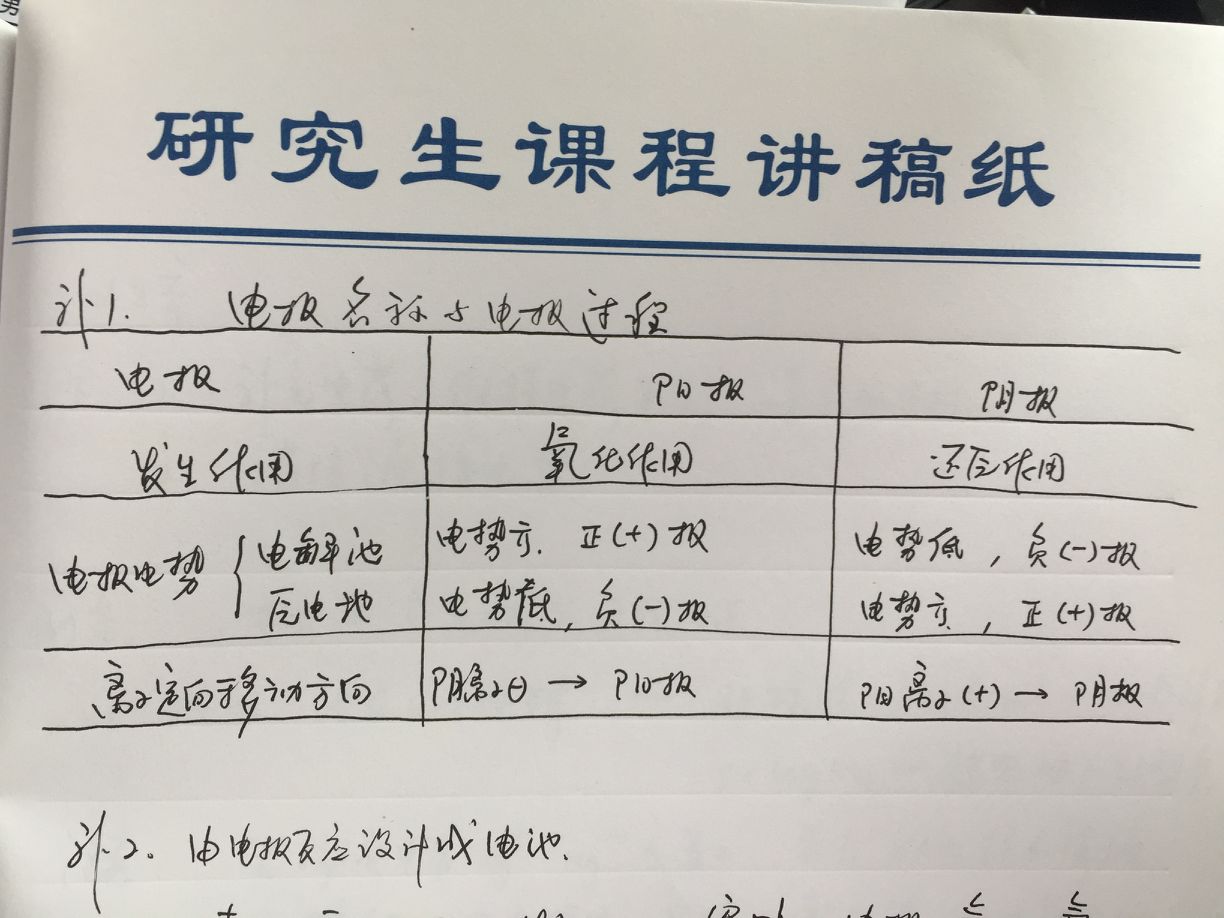 研究生课程讲稿纸
补1. 电极名称与电极过程
电极 阳极 阴极
发生作用 氧化作用 还原作用
电极电势 { 电解池 电势高. 正(+)极 电势低, 负(-)极
原电池 电势低, 负(-)极 电势高, 正(+)极
离子定向移动方向 阴离子(-) → 阳极 阳离子(+) → 阴极
补2. 由电极反应设计成电池.